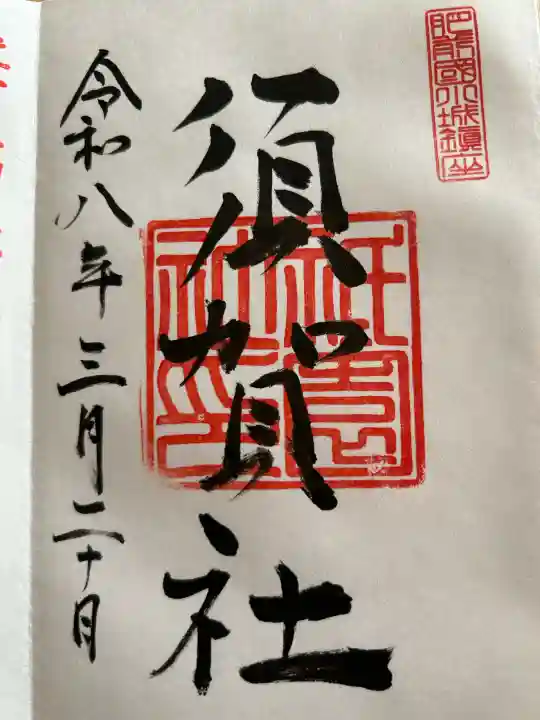 肥前國小城鎮坐
須賀社
令和八年三月二十日